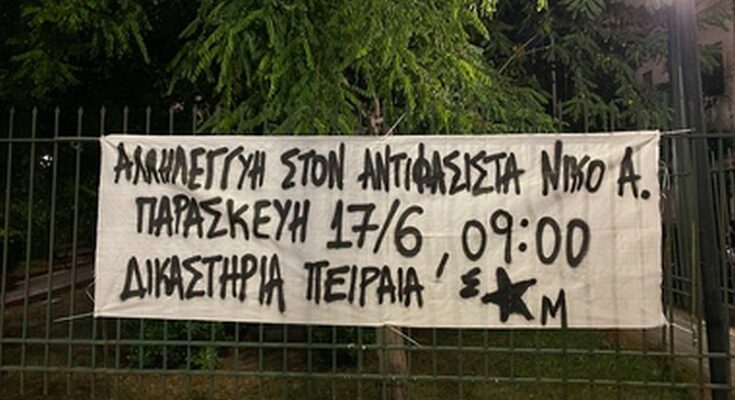 ΑΛΛΗΛΕΓΓΥΗ ΣΤΟΝ ΑΝΤΙΦΑΣΙΣΤΑ ΝΙΚΟ Α.
ΠΑΡΑΣΚΕΥΗ 17/6, 09:00
ΔΙΚΑΣΤΗΡΙΑ ΠΕΙΡΑΙΑ Σ★Μ